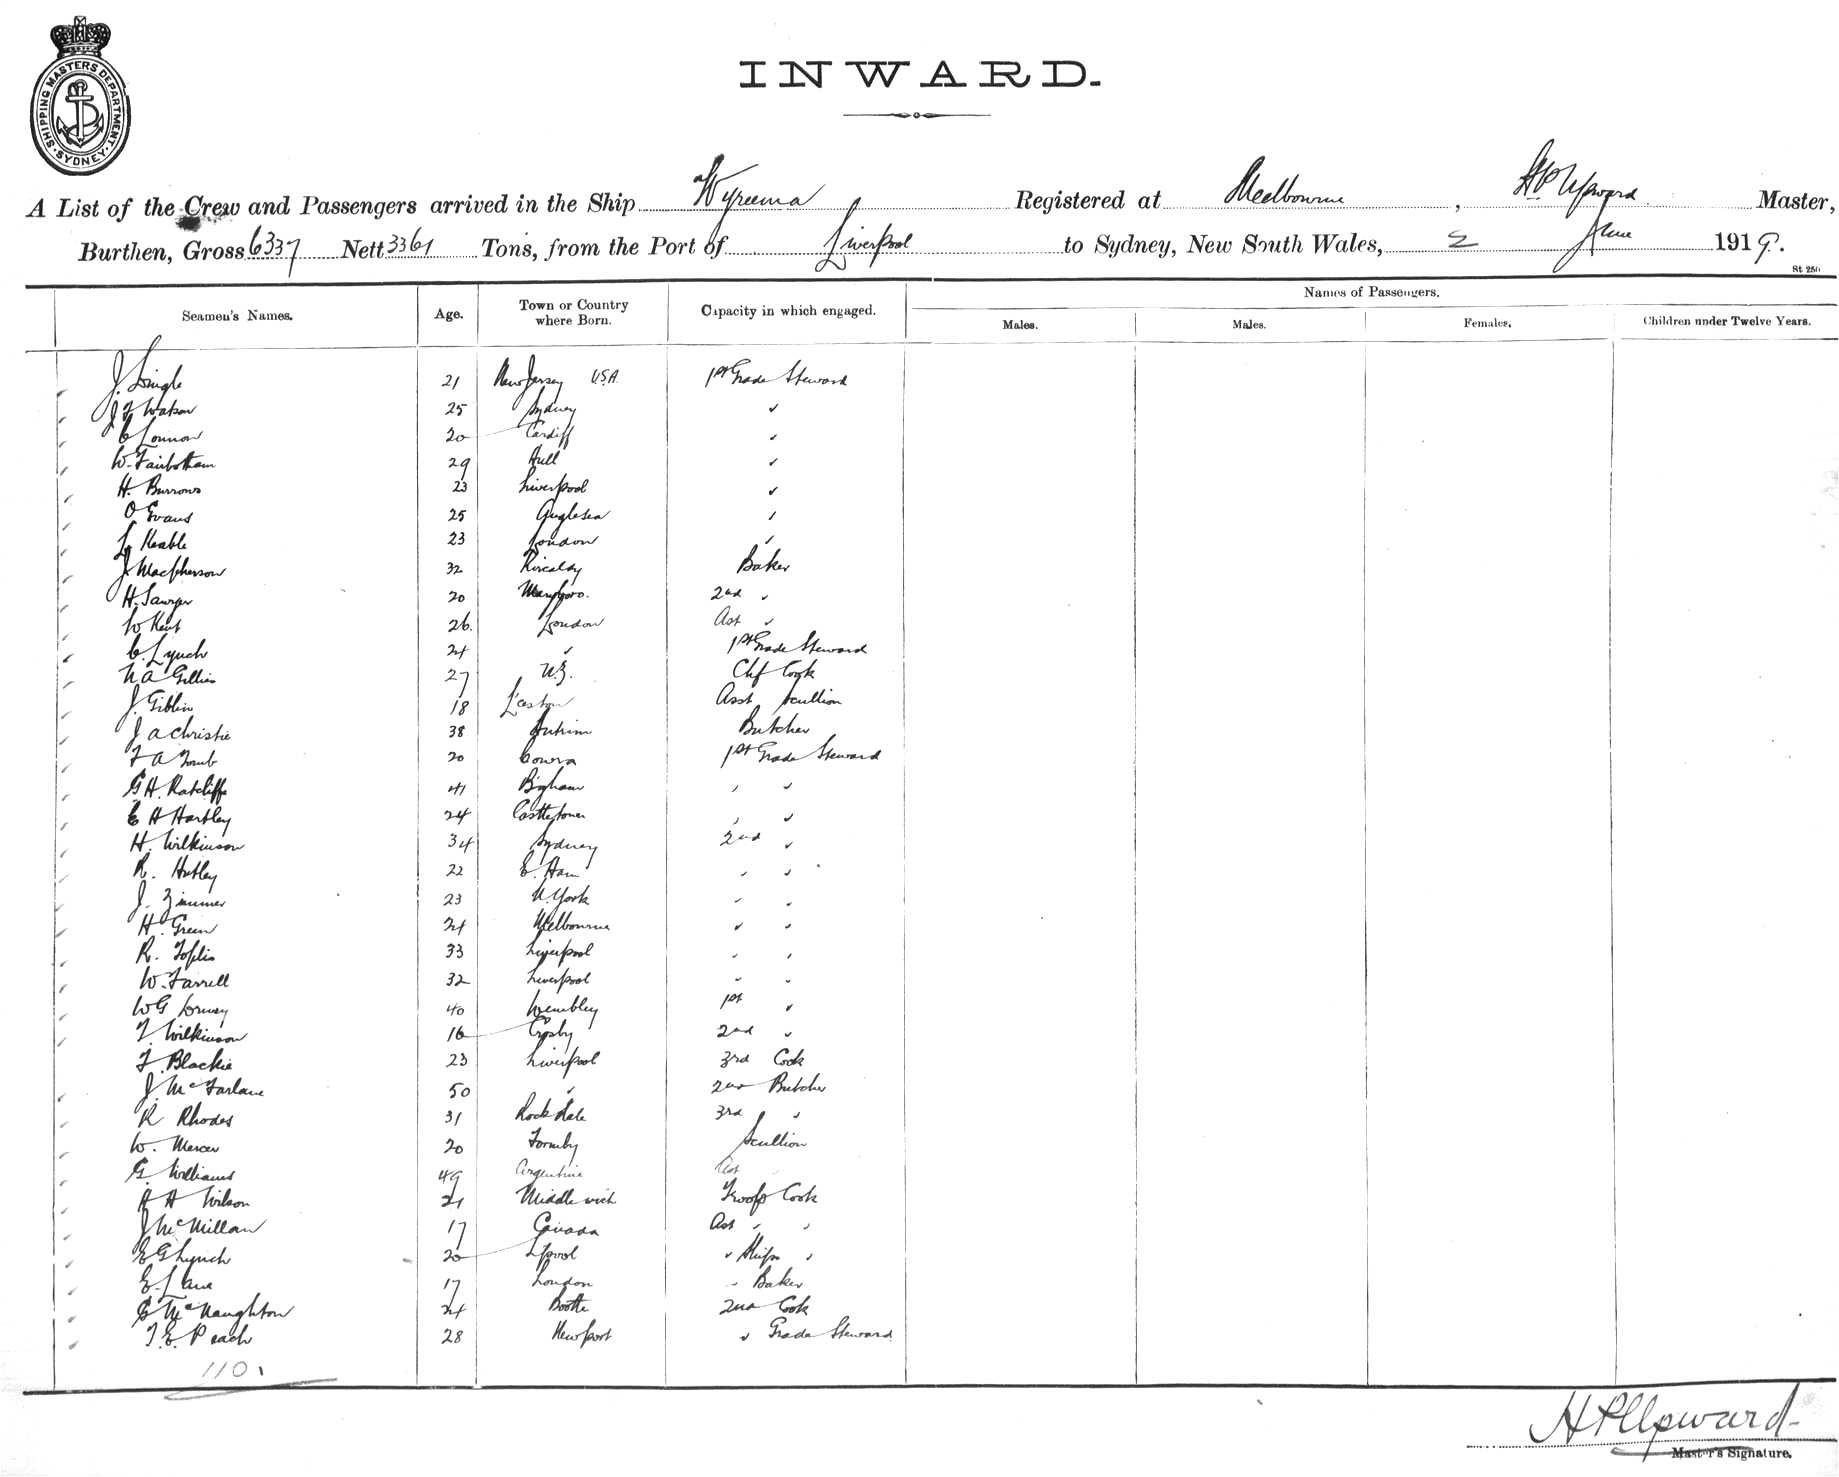 SHIPPING MASTERS DEPARTMENT. SYDNEY.
INWARD.
A List of the Crew and Passengers arrived in the Ship Wyreema Registered at Melbourne, HP Upward Master,
Burthen, Gross 6337 Nett 3361 Tons, from the Port of Liverpool to Sydney, New South Wales, 2 June 1919.
St 250
Names of Passengers.
Seamen's Names. Age. Town or Country where Born. Capacity in which engaged. Males. Males. Females. Children under Twelve Years.
J. 21 New Jersey U.S.A. 1st Grade Steward
J F Watson 25 Sydney ✓
C Lonnon 20 Cardiff ✓
W. Fairbotham 29 Hull ✓
H. Burrows 23 Liverpool ✓
O Evans 25 Anglesea ✓
L Keable 23 London ✓
J Macpherson 32 Baker
H. Sawyer 20 Maryboro. 2nd ✓
W Kent 26. London Ast ✓
C. Lynch 24 ✓ 1st Grade Steward
N A Gillies 27 N.Z. Chf Cook
J. Giblin 18 L'ceston Asst Scullion
J A Christie 38 Antrim Butcher
F A 20 Cowra 1st Grade Steward
G H. Ratcliffe 41 B'gham ✓ ✓
E H Hartley 24 Castletown ✓ ✓
H. Wilkinson 34 Sydney 2nd ✓
R. Hutley 22 E. Ham ✓ ✓
J. Zimmer 23 N. York ✓ ✓
H. Green 24 Melbourne ✓ ✓
R. Toplis 33 Liverpool ✓ ✓
W. Farrell 32 Liverpool ✓ ✓
W G 40 Wembley 1st ✓
F. Wilkinson 16 Crosby 2nd ✓
F. Blackie 23 Liverpool 3rd Cook
J. McFarlane 50 ✓ 2nd Butcher
R Rhodes 31 Rock 3rd ✓
W. Mercer 20 Formby Scullion
G. Williams 49 Argentine Ast
A H Wilson 21 Middlewich Troops Cook
J McMillan 17 Canada Ast ✓ ✓
E G Lynch 20 L'pool ✓ Ships ✓
E. Lane 17 London ✓ Baker
G McNaughton 24 Bootle 2nd Cook
T. E. Peach 28 Newport ✓ Grade Steward
110.
H P Upward
Master's Signature.